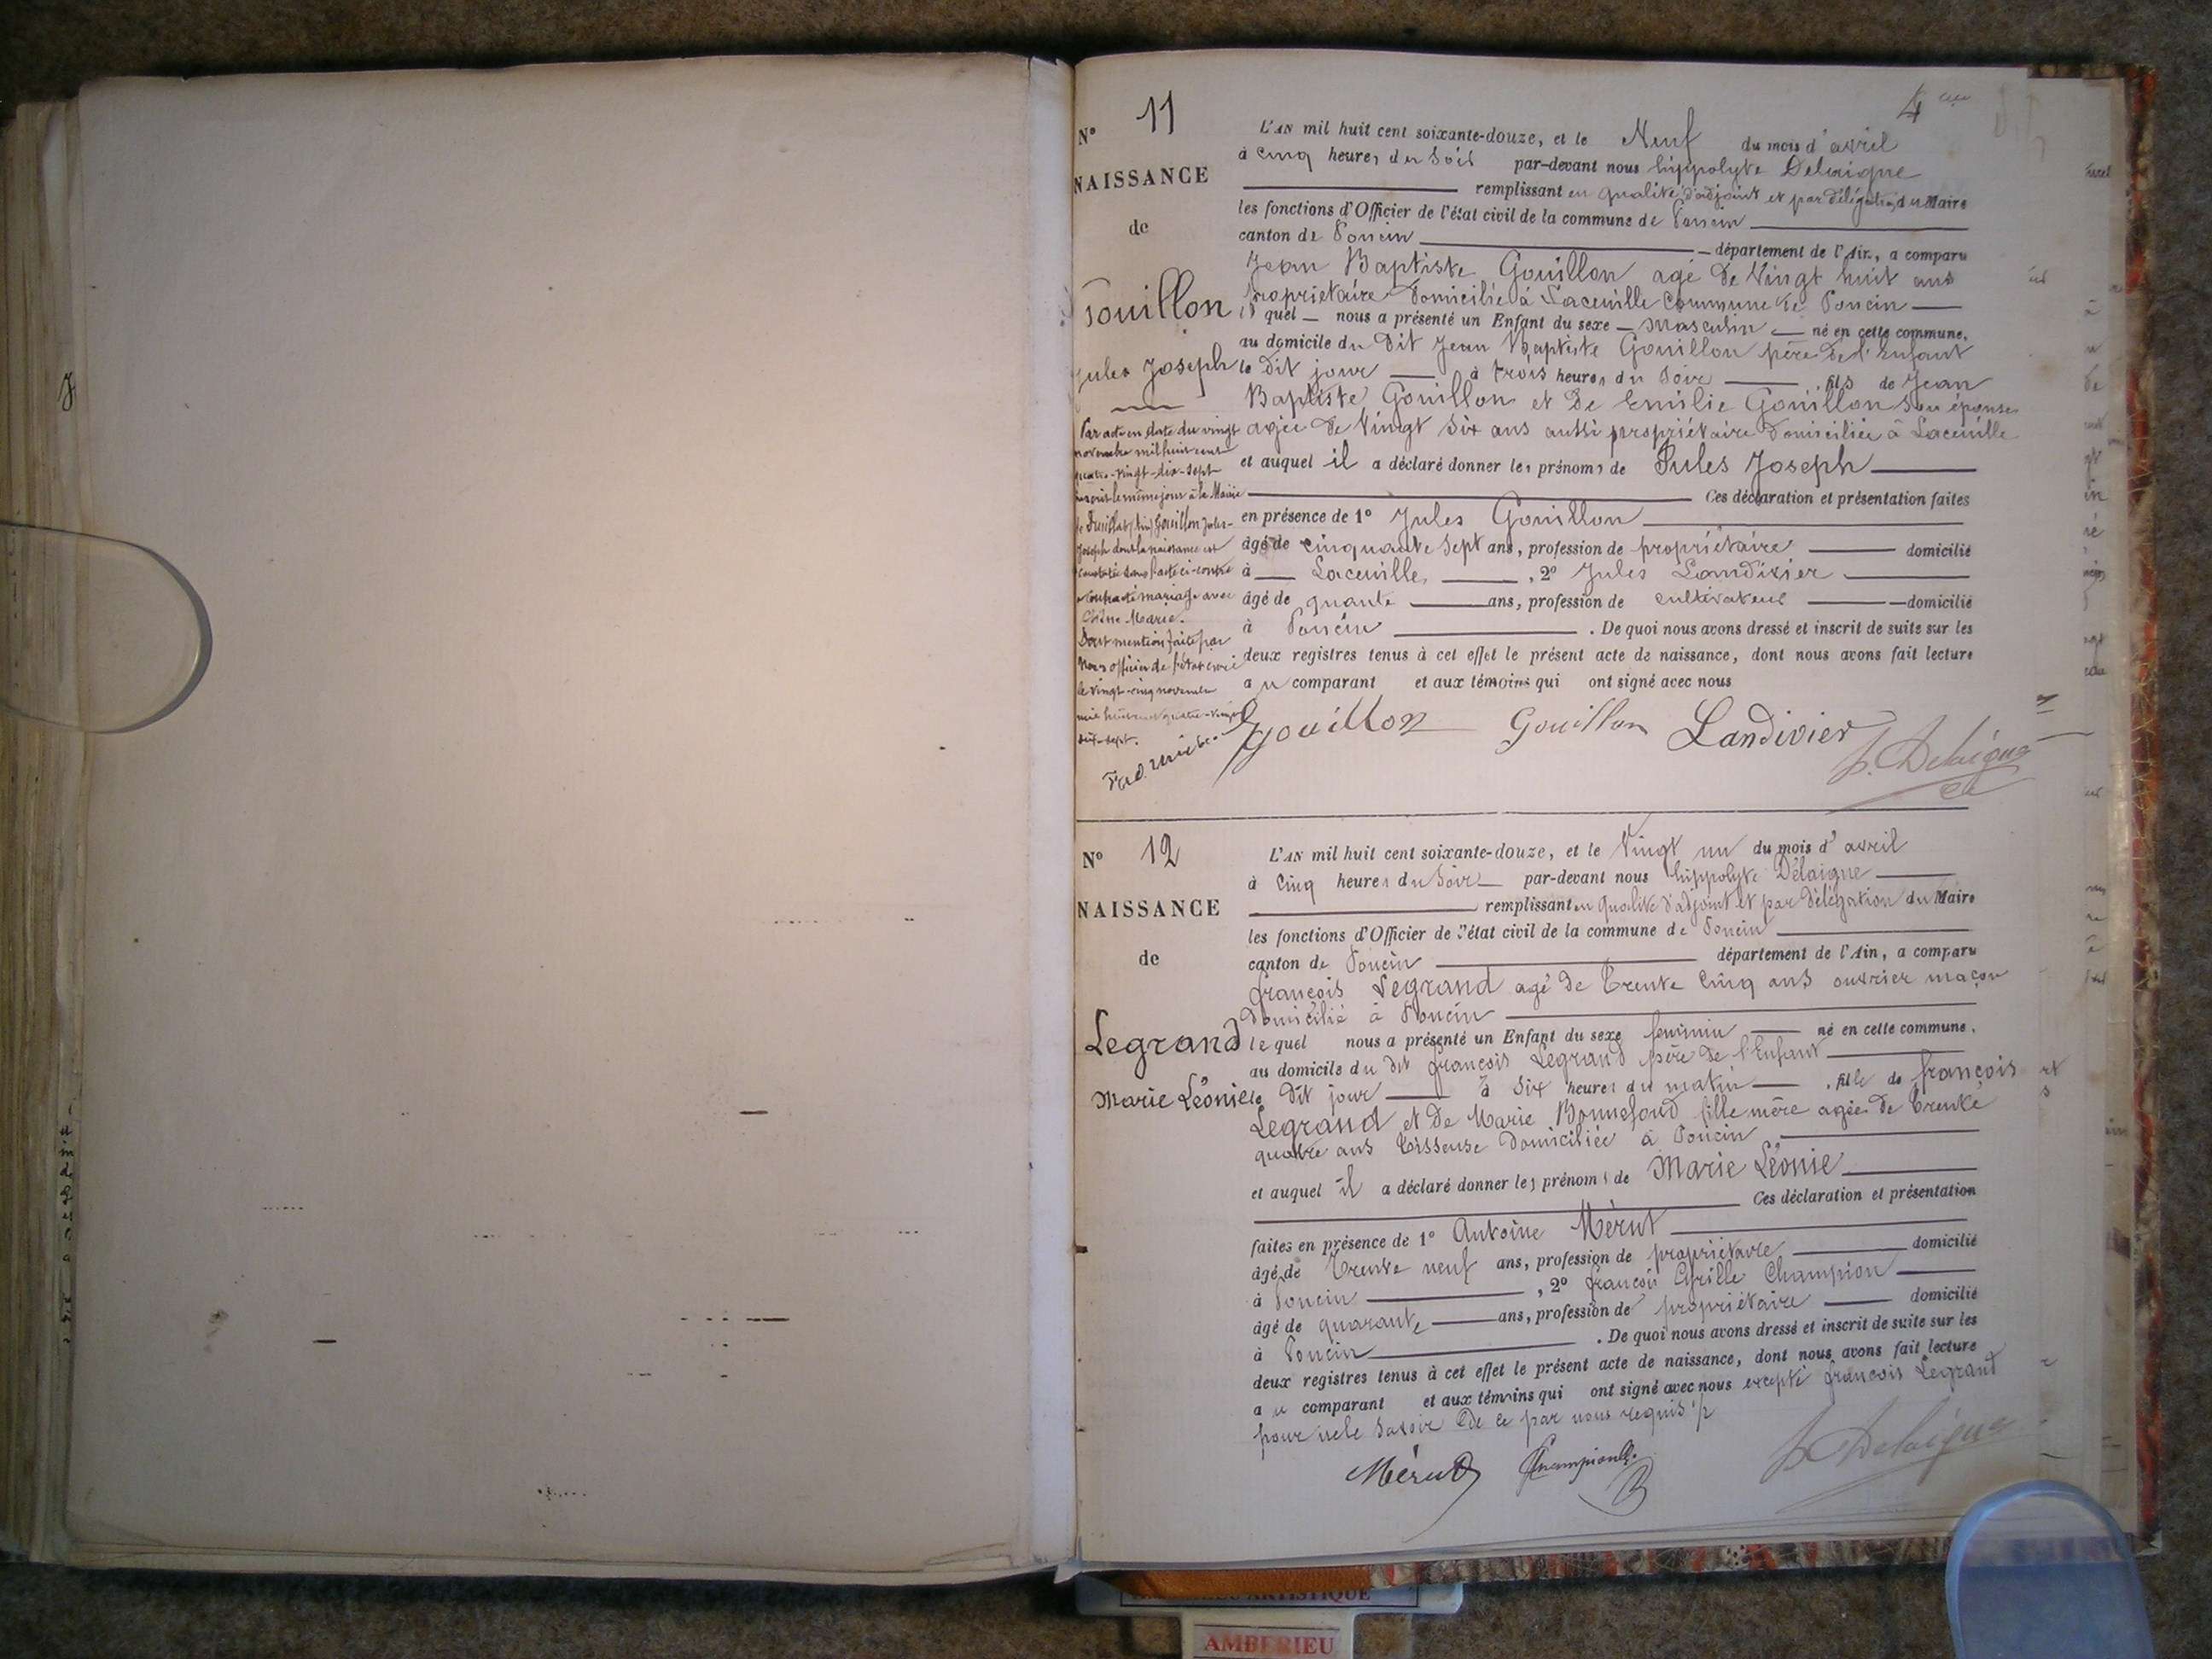 4
N° 11
NAISSANCE
de
Gouillon
Jules Joseph
Par acte en date du vingt
novembre mil huit cent
quatre-vingt-dix-sept
inscrit le même jour à la Mairie
de Druillat (Ain) Gouillon Jules-
Joseph dont la naissance est
constatée dans l'acte ci-contre
a contracté mariage avec
Chêne Marie.
Dont mention faite par
Nous officier de l'état civil
le vingt-cinq novembre
mil huit cent quatre-vingt
dix-sept.
L'AN mil huit cent soixante-douze, et le Neuf du mois d'avril
à Cinq heures du Soir par-devant nous hippolyte Delaigue
remplissant en qualité d'adjoint et par délégation du Maire
les fonctions d'Officier de l'état civil de la commune de Poncin
canton de Poncin département de l'Ain, a comparu
Jean Baptiste Gouillon agé de Vingt huit ans
propriétaire domicilié à Laceuille Commune de Poncin
le quel nous a présenté un Enfant du sexe masculin né en cette commune,
au domicile du dit Jean Baptiste Gouillon père de l'Enfant
le dit jour à trois heures du Soir , fils de Jean
Baptiste Gouillon et de Emilie Gouillon son épouse
agée de Vingt six ans aussi propriétaire domiciliée à Laceuille
et auquel il a déclaré donner les prénoms de Jules Joseph
Ces déclaration et présentation faites
en présence de 1° Jules Gouillon
âgé de cinquante sept ans, profession de propriétaire domicilié
à Laceuille, , 2° Jules Landivier
âgé de quante ans, profession de cultivateur domicilié
à Poncin . De quoi nous avons dressé et inscrit de suite sur les
deux registres tenus à cet effet le présent acte de naissance, dont nous avons fait lecture
au comparant et aux témoins qui ont signé avec nous
Gouillon Gouillon Landivier h. Delaigue
N° 12
NAISSANCE
de
Legrand
Marie Léonie
L'AN mil huit cent soixante-douze, et le Vingt un du mois d'avril
à Cinq heures du Soir par-devant nous hippolyte Delaigue
remplissant en qualité d'adjoint et par délégation du Maire
les fonctions d'Officier de l'état civil de la commune de Poncin
canton de Poncin département de l'Ain, a comparu
françois Legrand agé de Trente Cinq ans ouvrier maçon
domicilié à Poncin
le quel nous a présenté un Enfant du sexe feminin né en cette commune,
au domicile du dit françois Legrand père de l'Enfant
le dit jour à six heures du matin , fille de françois
Legrand et de Marie Bonnefond fille mère agée de Trente
quatre ans Tisseuse domiciliée à Poncin
et auquel il a déclaré donner les prénoms de Marie Léonie
Ces déclaration et présentation
faites en présence de 1° Antoine Mérut
âgé de Trente neuf ans, profession de propriétaire domicilié
à Poncin , 2° françois Cyrille Champion
âgé de quarante ans, profession de propriétaire domicilié
à Poncin . De quoi nous avons dressé et inscrit de suite sur les
deux registres tenus à cet effet le présent acte de naissance, dont nous avons fait lecture
au comparant et aux témoins qui ont signé avec nous excepté françois Legrand
pour ne le savoir de ce par nous requis
Mérut Champion h. Delaigue
ARTISTIQUE
AMBERIEU